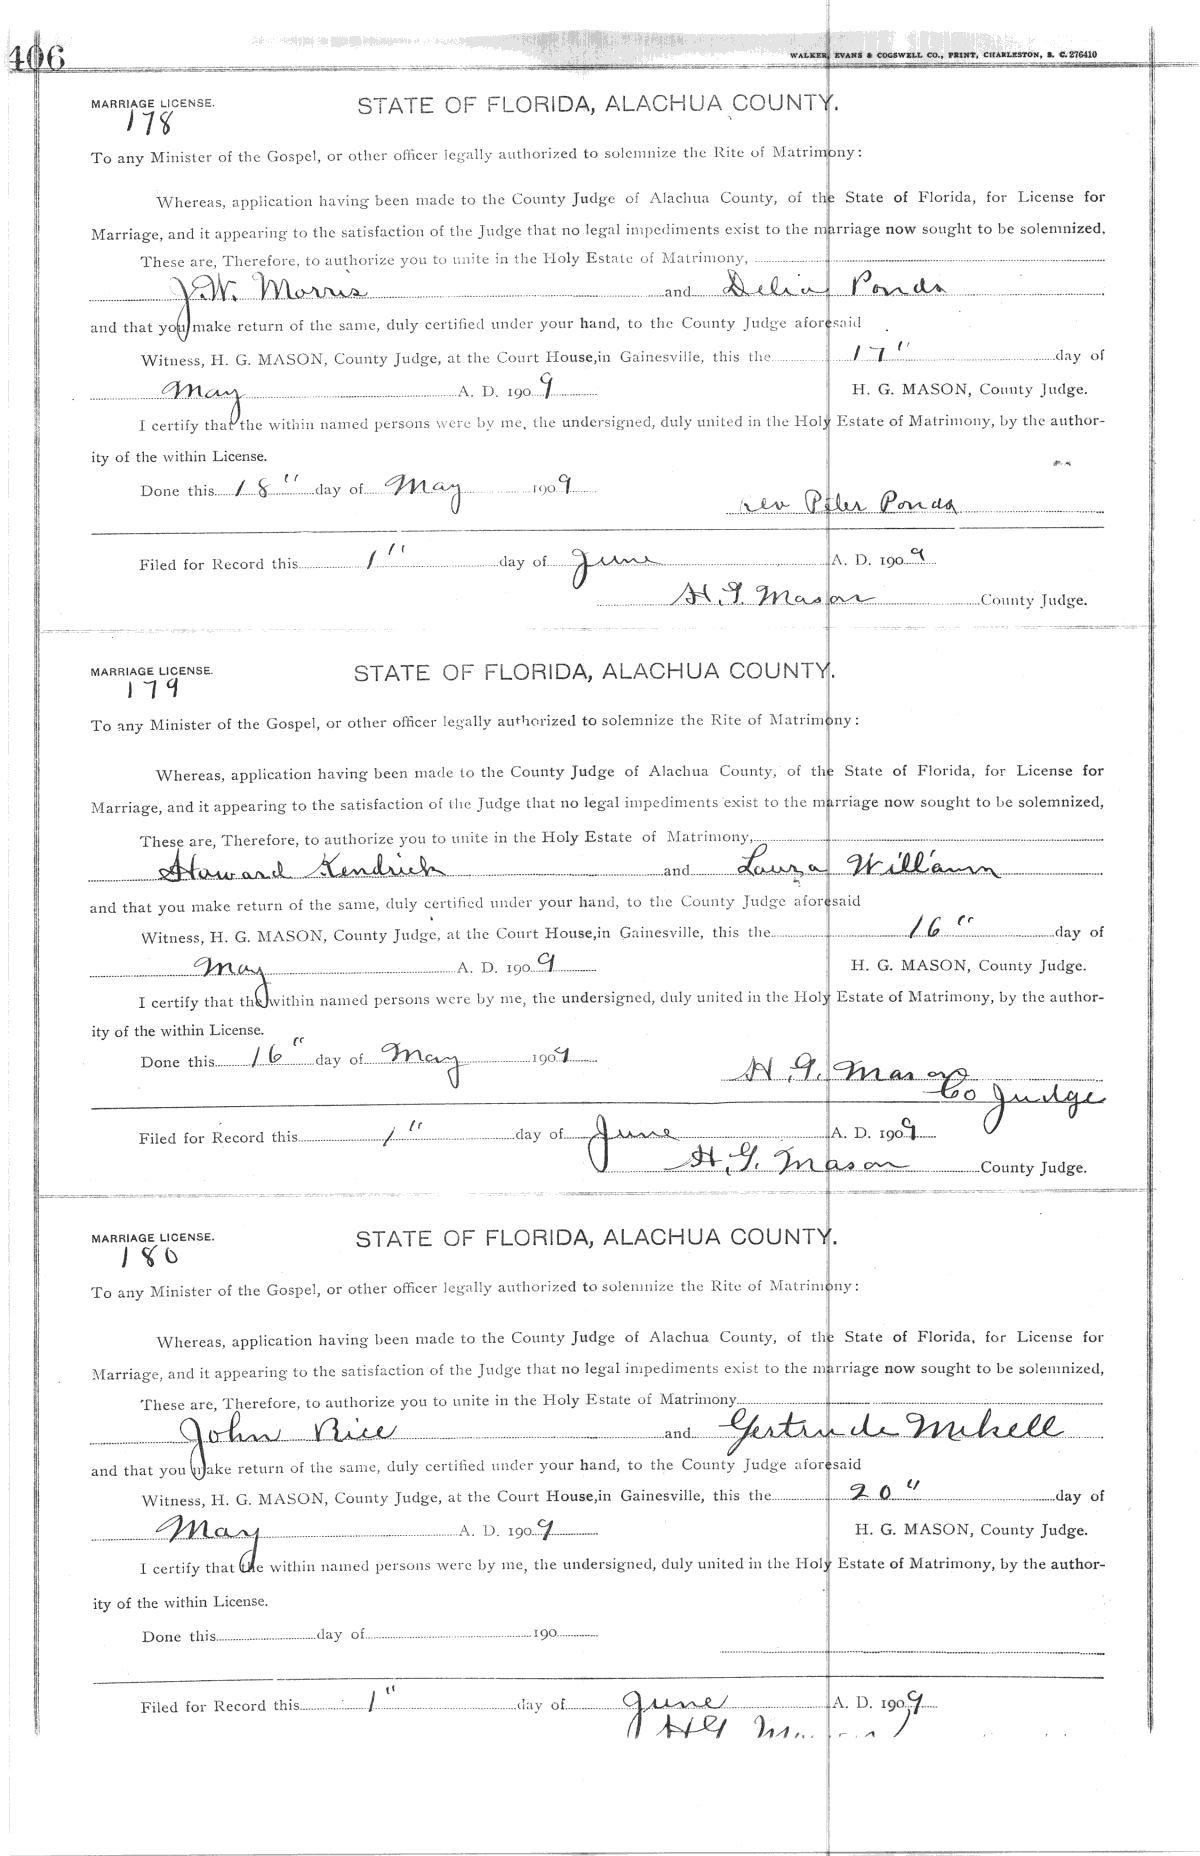 406
WALKER, EVANS & COGSWELL CO., PRINT, CHARLESTON, S. C. 276410
MARRIAGE LICENSE. STATE OF FLORIDA, ALACHUA COUNTY.
178
To any Minister of the Gospel, or other officer legally authorized to solemnize the Rite of Matrimony:
Whereas, application having been made to the County Judge of Alachua County, of the State of Florida, for License for
Marriage, and it appearing to the satisfaction of the Judge that no legal impediments exist to the marriage now sought to be solemnized,
These are, Therefore, to authorize you to unite in the Holy Estate of Matrimony,
J. W. Morris and Delia Ponds
and that you make return of the same, duly certified under your hand, to the County Judge aforesaid
Witness, H. G. MASON, County Judge, at the Court House, in Gainesville, this the 17" day of
May A. D. 1909 H. G. MASON, County Judge.
I certify that the within named persons were by me, the undersigned, duly united in the Holy Estate of Matrimony, by the author-
ity of the within License.
Done this 18" day of May 1909
Rev Peter Ponds
Filed for Record this 1" day of June A. D. 1909
H. G. Mason County Judge.
MARRIAGE LICENSE. STATE OF FLORIDA, ALACHUA COUNTY.
179
To any Minister of the Gospel, or other officer legally authorized to solemnize the Rite of Matrimony:
Whereas, application having been made to the County Judge of Alachua County, of the State of Florida, for License for
Marriage, and it appearing to the satisfaction of the Judge that no legal impediments exist to the marriage now sought to be solemnized,
These are, Therefore, to authorize you to unite in the Holy Estate of Matrimony,
Howard Kendrick and Laura Williams
and that you make return of the same, duly certified under your hand, to the County Judge aforesaid
Witness, H. G. MASON, County Judge, at the Court House, in Gainesville, this the 16" day of
May A. D. 1909 H. G. MASON, County Judge.
I certify that the within named persons were by me, the undersigned, duly united in the Holy Estate of Matrimony, by the author-
ity of the within License.
Done this 16" day of May 1909 H. G. Mason
Co Judge
Filed for Record this 1" day of June A. D. 1909
H. G. Mason County Judge.
MARRIAGE LICENSE. STATE OF FLORIDA, ALACHUA COUNTY.
180
To any Minister of the Gospel, or other officer legally authorized to solemnize the Rite of Matrimony:
Whereas, application having been made to the County Judge of Alachua County, of the State of Florida, for License for
Marriage, and it appearing to the satisfaction of the Judge that no legal impediments exist to the marriage now sought to be solemnized,
These are, Therefore, to authorize you to unite in the Holy Estate of Matrimony
John Rice and Gertrude Mikell
and that you make return of the same, duly certified under your hand, to the County Judge aforesaid
Witness, H. G. MASON, County Judge, at the Court House, in Gainesville, this the 20" day of
May A. D. 1909 H. G. MASON, County Judge.
I certify that the within named persons were by me, the undersigned, duly united in the Holy Estate of Matrimony, by the author-
ity of the within License.
Done this day of 190
Filed for Record this 1" day of June A. D. 1909
HG